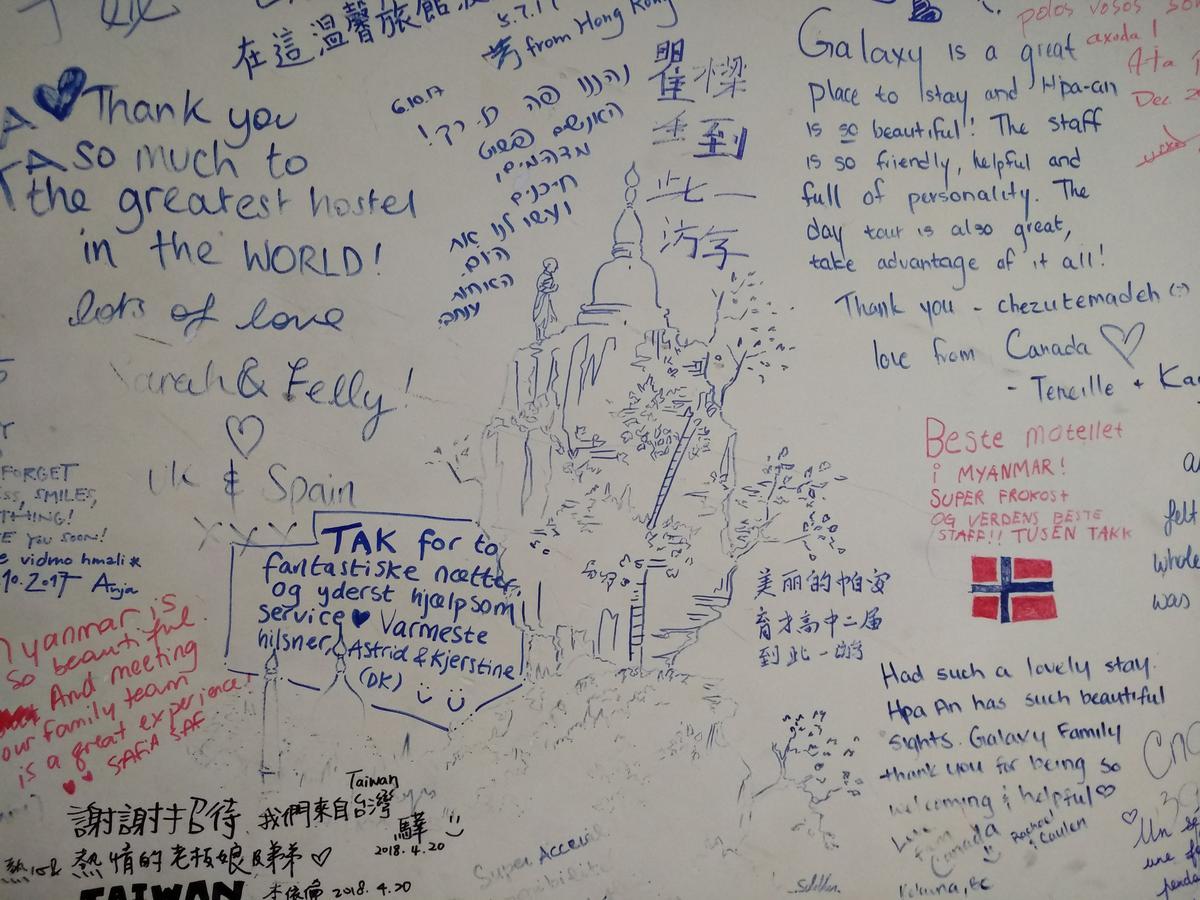 在這溫馨旅館
5.7.17
from Hong Kong
Thank you
so much to
the greatest hostel
in the WORLD!
lots of love
arah & Felly!
UK & Spain
XXX
6.10.17
נהננו פה
האנשים פשוט
מדהימים,
חייכנים
ועשו לנו את
היום.
到
此一
Galaxy is a great
place to stay and Hpa-an
is so beautiful! The staff
is so friendly, helpful and
full of personality. The
day tour is also great,
take advantage of it all!
Thank you - chezutemadeh
love from Canada
- Teneille +
polos vosos
axuda!
Dec.
Beste motellet
i MYANMAR!
SUPER FROKOST
OG VERDENS BESTE
STAFF!! TUSEN TAKK
felt
whole
was
FORGET
SMILES,
THING!
you soon!
vidmo hmali*
10.2017 Anja
TAK for to
fantastiske nætter,
og yderst hjælpsom
service Varmeste
hilsner, Astrid & Kjerstine
(DK)
yanmar is
so beautiful.
And meeting
our family team
is a great experience!
美丽的帕安
育才高中二届
到此一游
Had such a lovely stay.
Hpa An has such beautiful
sights. Galaxy Family
thank you for being so
welcoming & helpful
Canada
Rachael
Kelowna, BC
謝謝招待 我們來自台灣
Taiwan
2018.4.20
熱情的老板娘
TAIWAN
2018.4.20
Super
Un
une